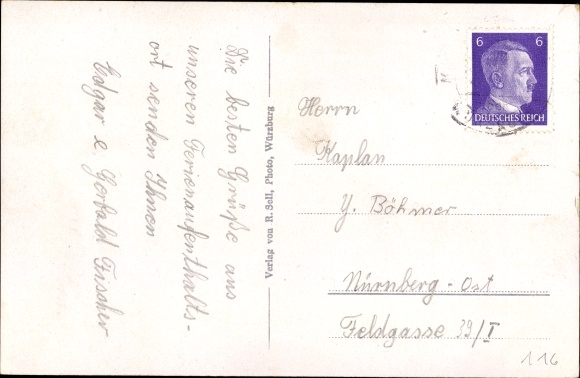 Die besten Grüße aus
unserem Ferienaufenthalts-
ort senden Ihnen
Edgar & Gerhald Fischer
Verlag von R. Sell, Photo, Würzburg
6 6
DEUTSCHES REICH
Herrn
Kaplan
Y. Böhmer
Nürnberg-Ost
Feldgasse 39/I
116